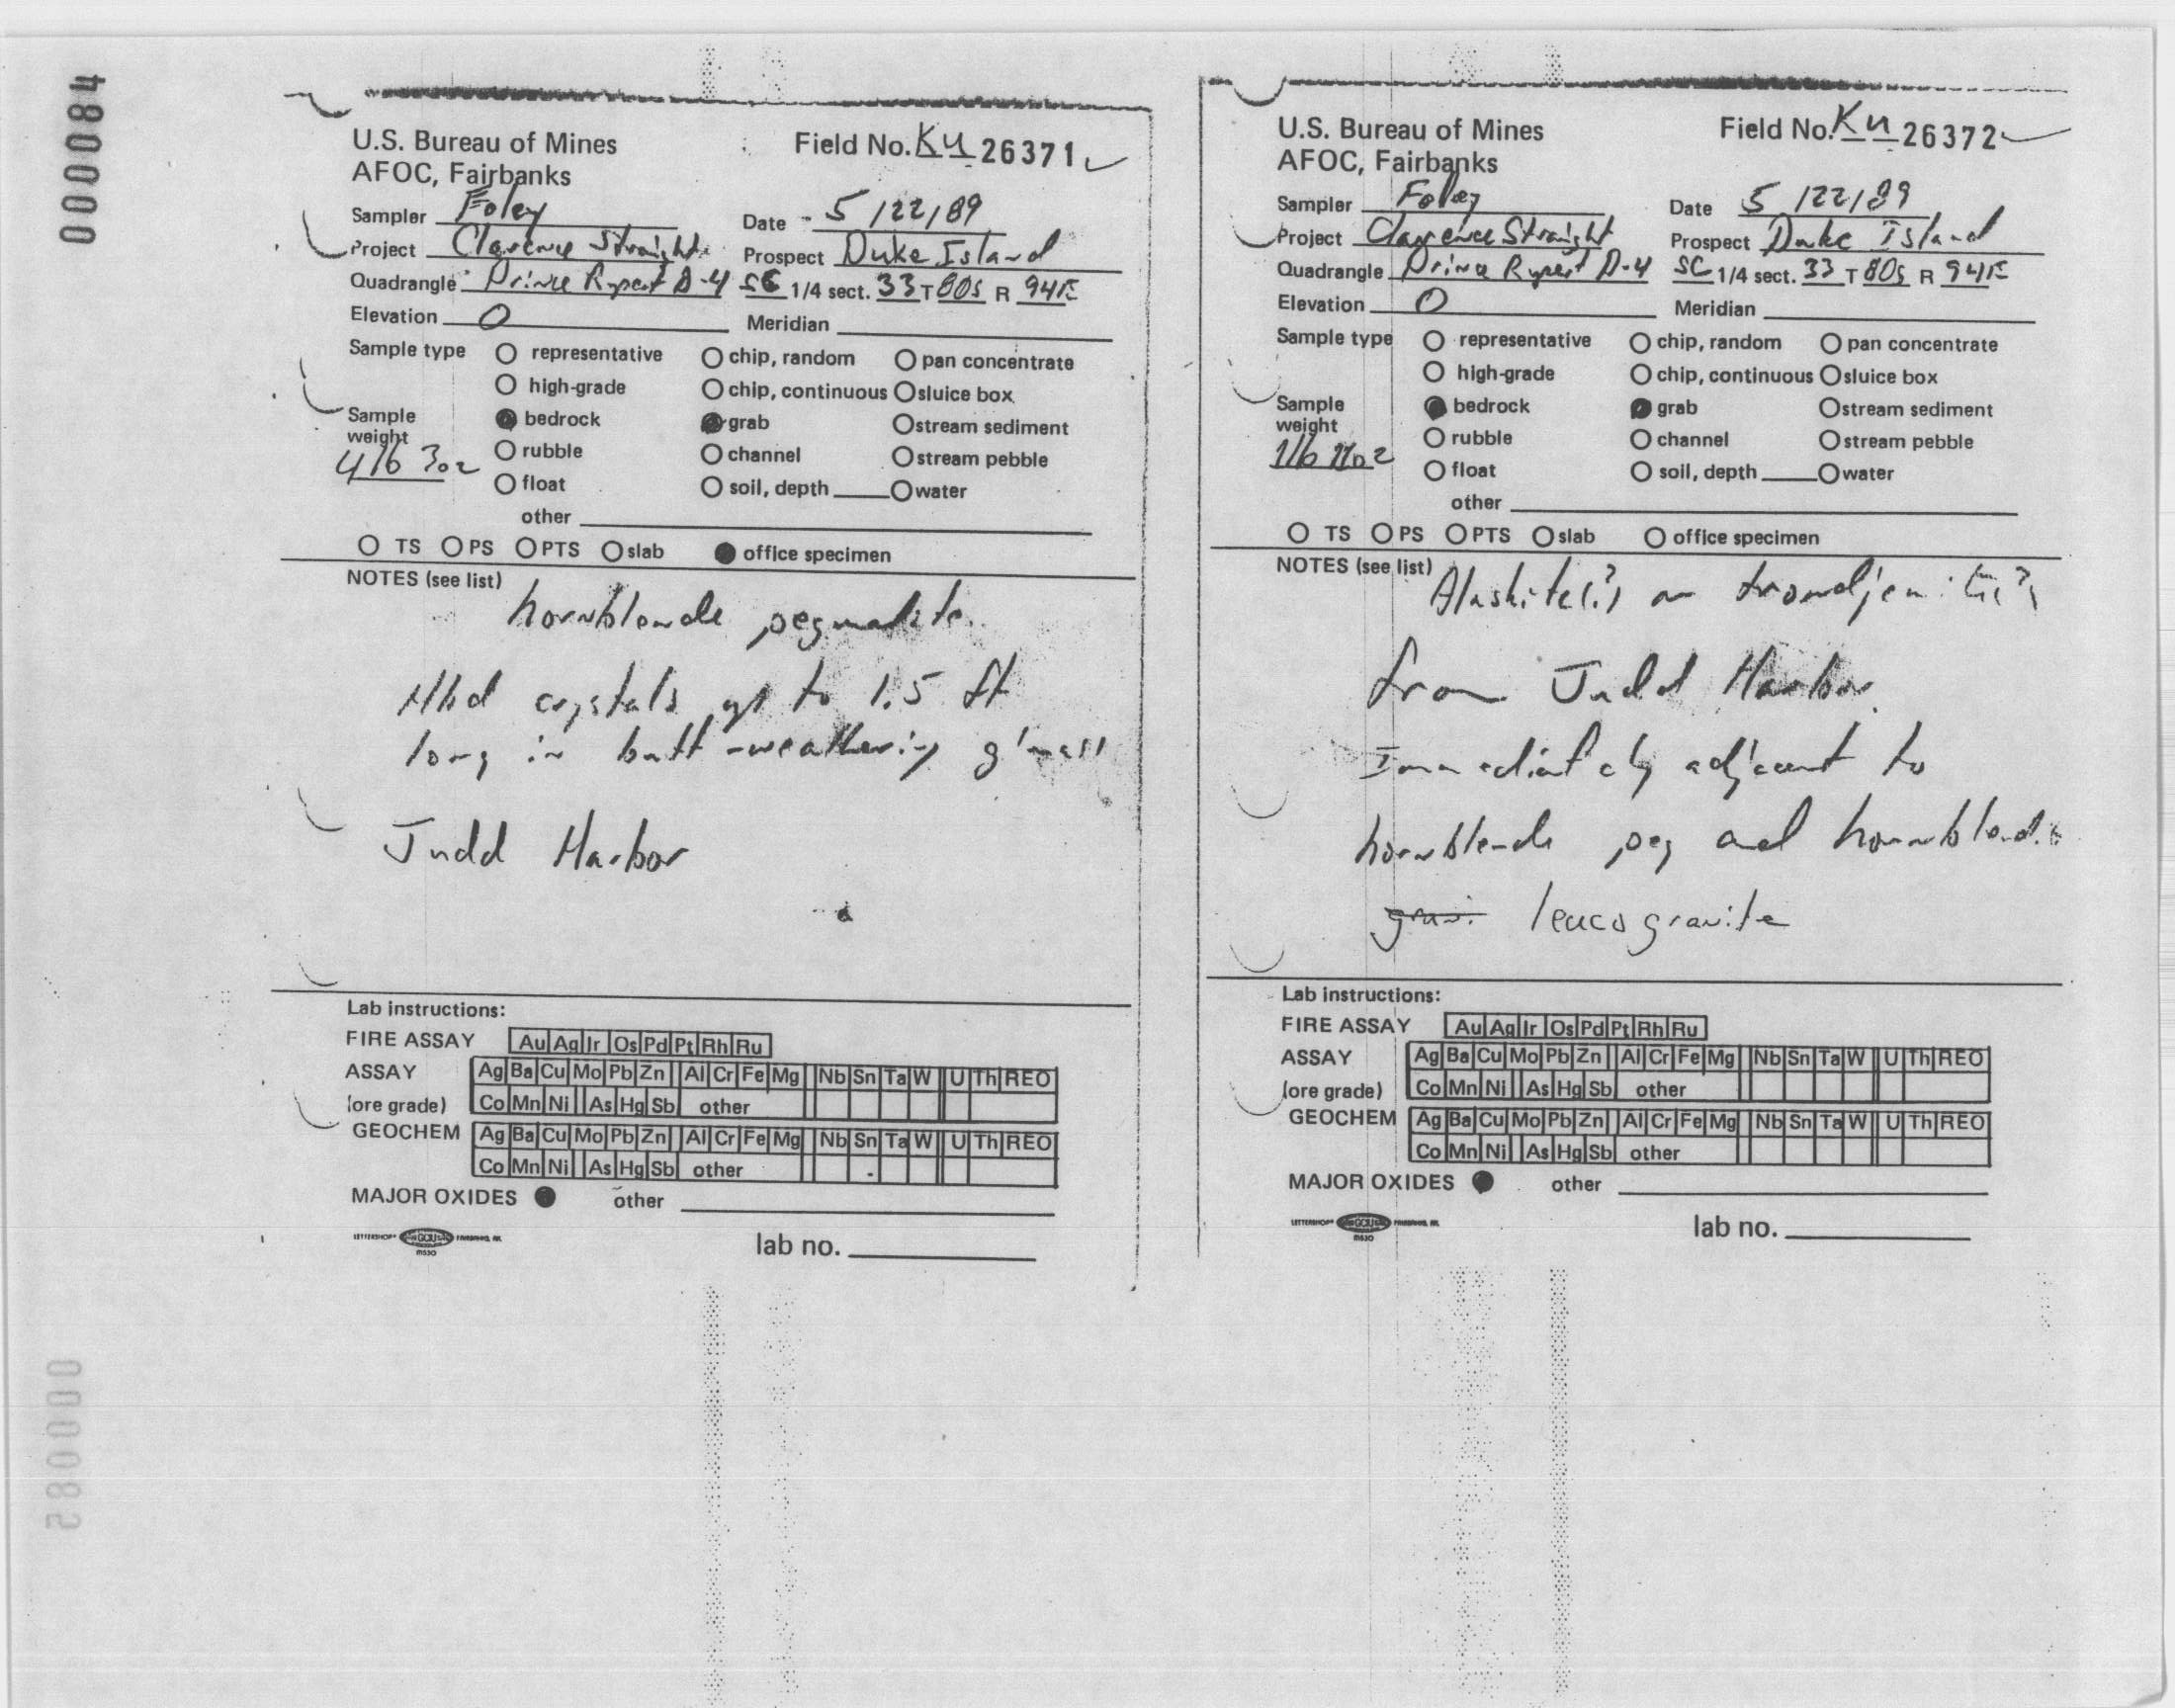 000084
U.S. Bureau of Mines
AFOC, Fairbanks
Field No. Ku 26371
Sampler Foley
Date 5/22/89
Project Clarence Straight
Prospect Duke Island
Quadrangle Prince Rupert D-4 SE 1/4 sect. 33 T 80S R 94E
Elevation 0
Meridian
Sample type representative chip, random pan concentrate
high-grade chip, continuous sluice box
Sample weight bedrock grab stream sediment
4 lb 3oz rubble channel stream pebble
float soil, depth water
other
TS PS PTS slab office specimen
NOTES (see list)
hornblende pegmatite
Hbd crystals up to 1.5 ft
long in buff-weathering g'mass
Judd Harbor
Lab instructions:
FIRE ASSAY Au Ag Ir Os Pd Pt Rh Ru
ASSAY Ag Ba Cu Mo Pb Zn Al Cr Fe Mg Nb Sn Ta W U Th REO
(ore grade) Co Mn Ni As Hg Sb other
GEOCHEM Ag Ba Cu Mo Pb Zn Al Cr Fe Mg Nb Sn Ta W U Th REO
Co Mn Ni As Hg Sb other
MAJOR OXIDES other
lab no.
U.S. Bureau of Mines
AFOC, Fairbanks
Field No. Ku 26372
Sampler Foley
Date 5/22/89
Project Clarence Straight
Prospect Duke Island
Quadrangle Prince Rupert D-4 SE 1/4 sect. 33 T 80S R 94E
Elevation 0
Meridian
Sample type representative chip, random pan concentrate
high-grade chip, continuous sluice box
Sample weight bedrock grab stream sediment
1 lb 11oz rubble channel stream pebble
float soil, depth water
other
TS PS PTS slab office specimen
NOTES (see list)
Alaskite(?) or trondjemitic?
from Judd Harbor
Immediately adjacent to
hornblende peg and hornblende
leucogranite
Lab instructions:
FIRE ASSAY Au Ag Ir Os Pd Pt Rh Ru
ASSAY Ag Ba Cu Mo Pb Zn Al Cr Fe Mg Nb Sn Ta W U Th REO
(ore grade) Co Mn Ni As Hg Sb other
GEOCHEM Ag Ba Cu Mo Pb Zn Al Cr Fe Mg Nb Sn Ta W U Th REO
Co Mn Ni As Hg Sb other
MAJOR OXIDES other
lab no.